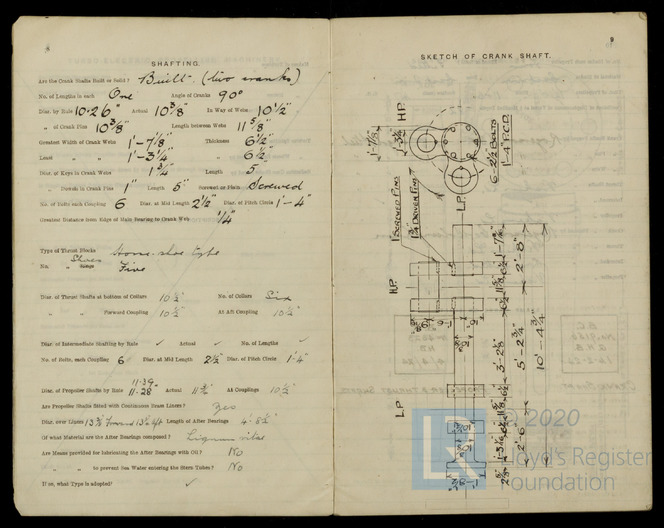 8
SHAFTING.
Are the Crank Shafts Built or Solid? Built (two cranks)
No. of Lengths in each One Angle of Cranks 90°
Diar. by Rule 10.26" Actual 10 3/8" In Way of Webs 10 1/2"
" of Crank Pins 10 3/8" Length between Webs 11 5/8"
Greatest Width of Crank Webs 1'-7 1/8" Thickness 6 1/2"
Least " " 1'-3 1/4" " 6 1/2"
Diar. of Keys in Crank Webs 1 3/4" Length 5"
" Dowels in Crank Pins 1" Length 5" Screwed or Plain Screwed
No. of Bolts each Coupling 6 Diar. at Mid Length 2 1/2" Diar. of Pitch Circle 1'-4"
Greatest Distance from Edge of Main Bearing to Crank Web 1/4"
Type of Thrust Blocks Horse shoe type
No. " Shoes Rings Five
Diar. of Thrust Shafts at bottom of Collars 10 1/2" No. of Collars Six
" " Forward Coupling 10 1/2" At Aft Coupling 10 1/2"
Diar. of Intermediate Shafting by Rule ✓ Actual ✓ No. of Lengths ✓
No. of Bolts, each Coupling 6 Diar. at Mid Length 2 1/2" Diar. of Pitch Circle 1'-4"
11.39
Diar. of Propeller Shafts by Rule 11.28" Actual At Couplings 10 1/2"
Are Propeller Shafts fitted with Continuous Brass Liners? Yes
Diar. over Liners Length of After Bearings 4'-8 1/2"
Of what Material are the After Bearings composed? Lignum vitae
Are Means provided for lubricating the After Bearings with Oil? No
" " to prevent Sea Water entering the Stern Tubes? No
If so, what Type is adopted? ✓
9
SKETCH OF CRANK SHAFT.
H.P.
1'-7 1/8"
1'-3 1/4"
6-2 1/2" BOLTS
1'-4" P.C.D.
L.P.
1" SCREWED PINS
1 3/4" DRIVEN PINS
H.P.
L.P.
1'-7 7/16"
2'-8"
3'-2 5/8"
5'-2 3/4"
10'-4 3/4"
2'-6"
© 2020
Lloyd's Register
Foundation